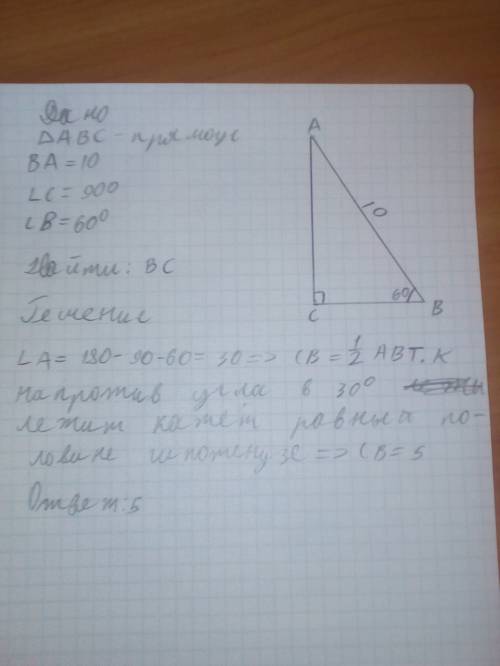 Дано
ΔABC - прямоуг
BA = 10
∠C = 90°
∠B = 60°
Найти: BC
Решение
∠A = 180 - 90 - 60 = 30 => CB = 1/2 AB т. к
напротив угла в 30°
лежит катет равный по-
ловине гипотенузе => CB = 5
Ответ: 5
A
10
60
C
B